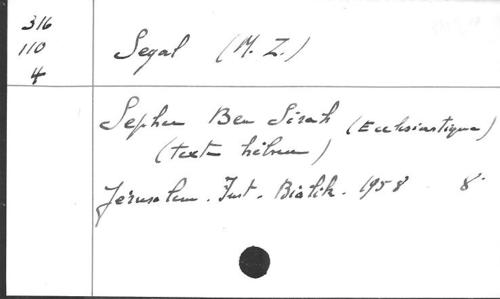 316
110
4
Segal (M. Z.)
Sepher Ben Sirah (Ecclesiastique)
(texte hébreu)
Jérusalem. Inst. Bialik. 1958 8°